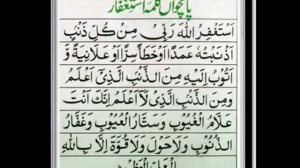 پانچواں کلمہ استغفار
اَسْتَغْفِرُ اللهَ رَبِّیْ مِنْ كُلِّ ذَنْۢبٍ
اَذْنَبْتُهٗ عَمَدًا اَوْ خَطَأً سِرًّا اَوْ عَلَانِيَةً وَّ
اَتُوْبُ اِلَيْهِ مِنَ الذَّنْۢبِ الَّذِيْٓ اَعْلَمُ
وَمِنَ الذَّنْۢبِ الَّذِيْ لَآ اَعْلَمُ اِنَّكَ اَنْتَ
عَلَّامُ الْغُيُوْبِ وَسَتَّارُ الْعُيُوْبِ وَغَفَّارُ
الذُّنُوْبِ وَلَا حَوْلَ وَلَا قُوَّةَ اِلَّا بِاللهِ
الْعَلِيِّ الْعَظِيْمِ